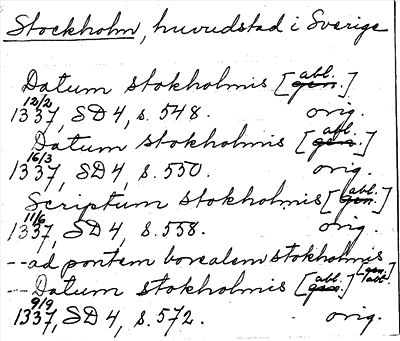 Stockholm, huvudstad i Sverige
Datum stokholmis [gen. abl.]
12/2
1337, SD 4, s. 548. orig.
Datum stokholmis [gen. abl.]
16/3
1337, SD 4, s. 550. orig.
Scriptum stokholmis [gen. abl.]
11/6
1337, SD 4, s. 558. orig.
--ad pontem borealem stokholmis
gen. abl.
--Datum stokholmis [gen. abl.]
9/9
1337, SD 4, s. 572. orig.